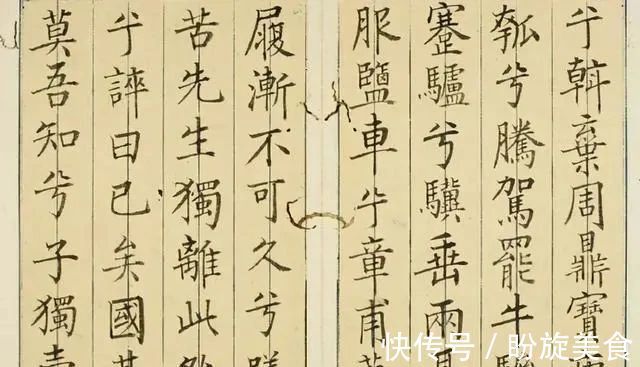 兮斡棄周鼎寶
瓠兮騰駕罷牛
蹇驢兮驥垂兩耳
服鹽車兮章甫
屨漸不可久兮嗟
苦先生獨離此
兮誶曰已矣國其
莫吾知兮子獨壹
快传号 / 盼旋美食